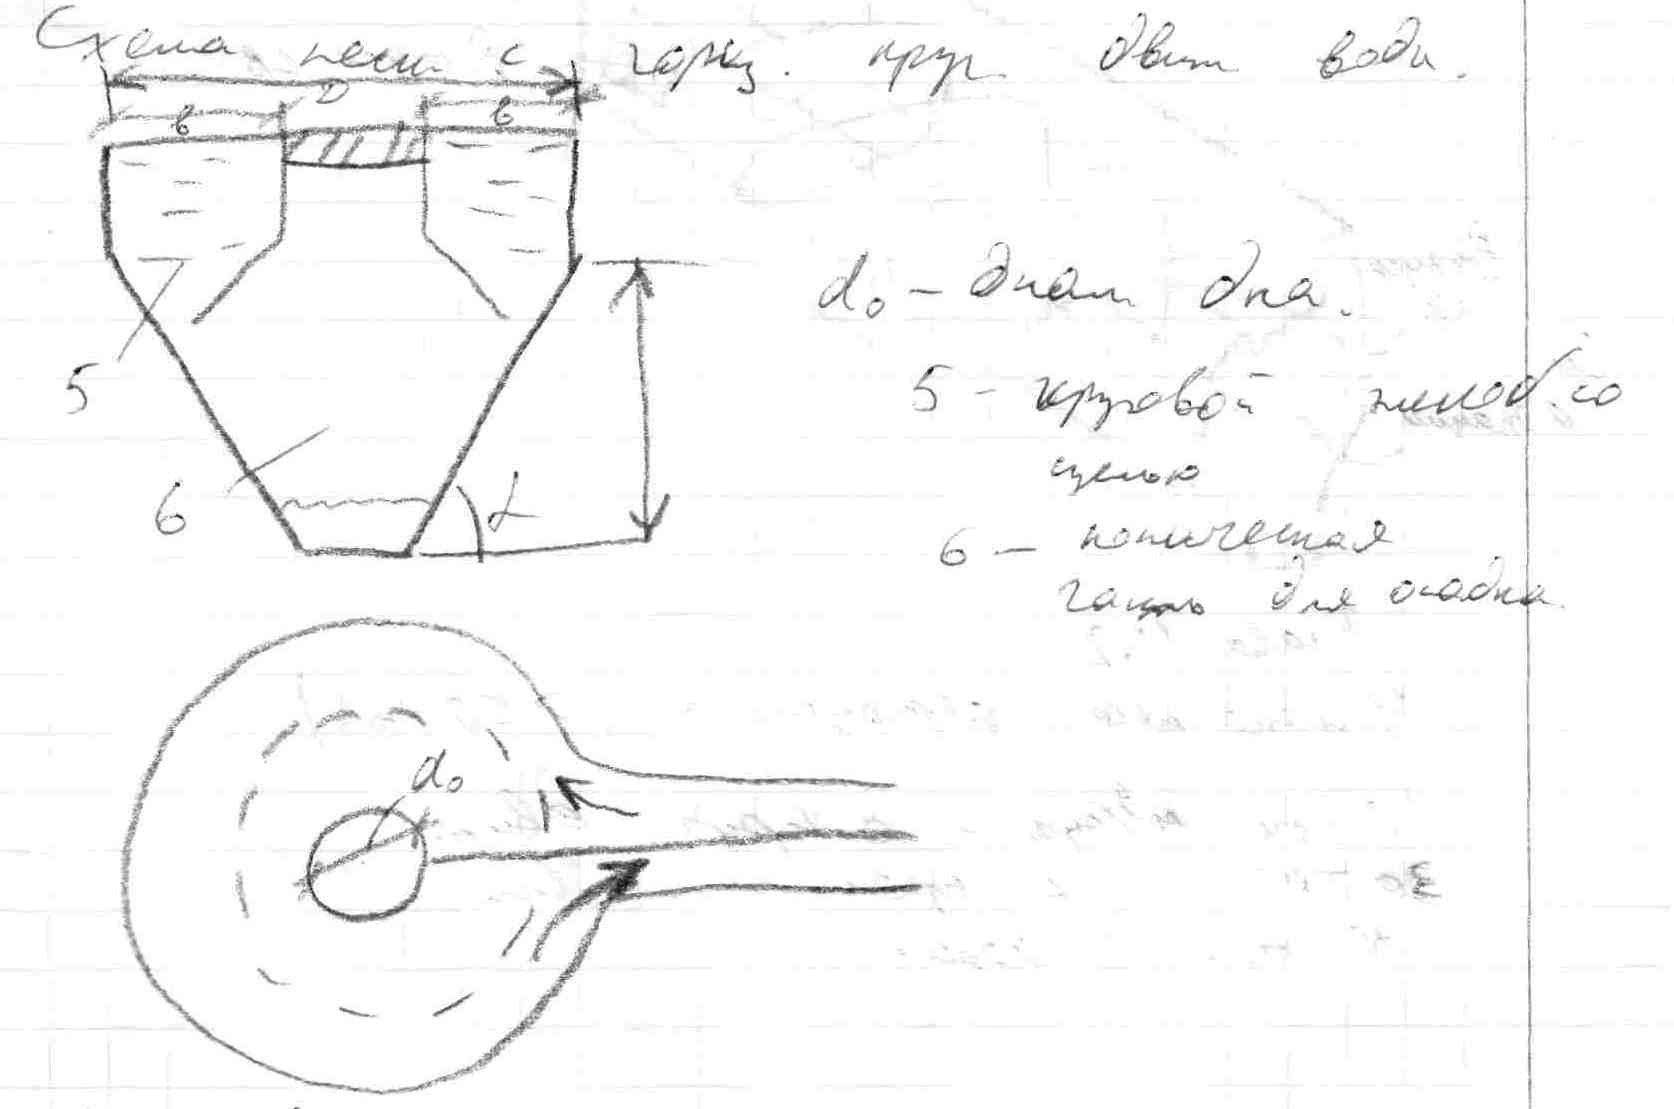 Схема песк с гориз. круг движ воды.
D
в в
d₀ – диам дна.
5 – круговой желоб со
щелью
6 – коническая
часть для осадка.
5
6
α
d₀